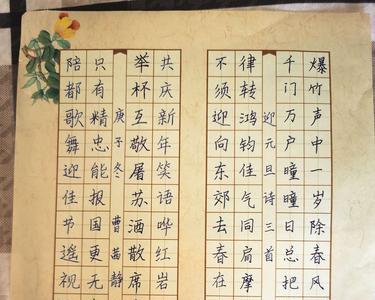 爆竹声中一岁除春风
千门万户瞳瞳日总把
迎元旦诗三首
律转鸿钧佳气同肩摩
不须迎向东郊去春在
共庆新年笑语哗红岩
举杯互敬屠苏酒散席
庚子冬 曹茜静
只有精忠能报国更无
陪都歌舞迎佳节遥视